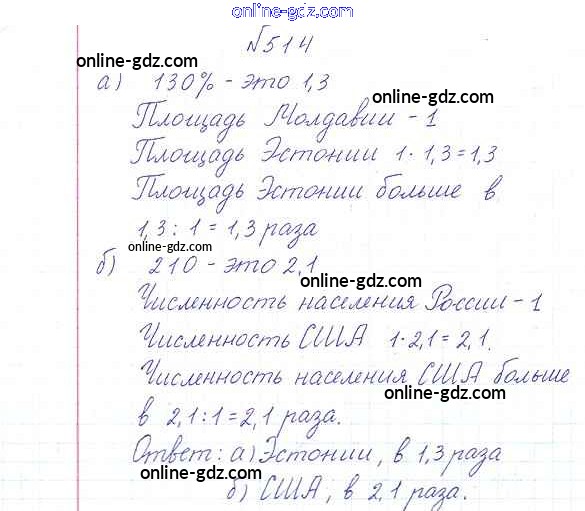 online-gdz.com
№514
online-gdz.com
а) 130% - это 1,3
online-gdz.com
Площадь Молдавии - 1
Площадь Эстонии 1·1,3=1,3
Площадь Эстонии больше в
1,3:1=1,3 раза
online-gdz.com
б) 210 - это 2,1
online-gdz.com
Численность населения России - 1
Численность США 1·2,1=2,1.
Численность населения США больше
online-gdz.com
в 2,1:1=2,1 раза.
Ответ: а) Эстонии, в 1,3 раза
online-gdz.com
online-gdz.com
б) США, в 2,1 раза.